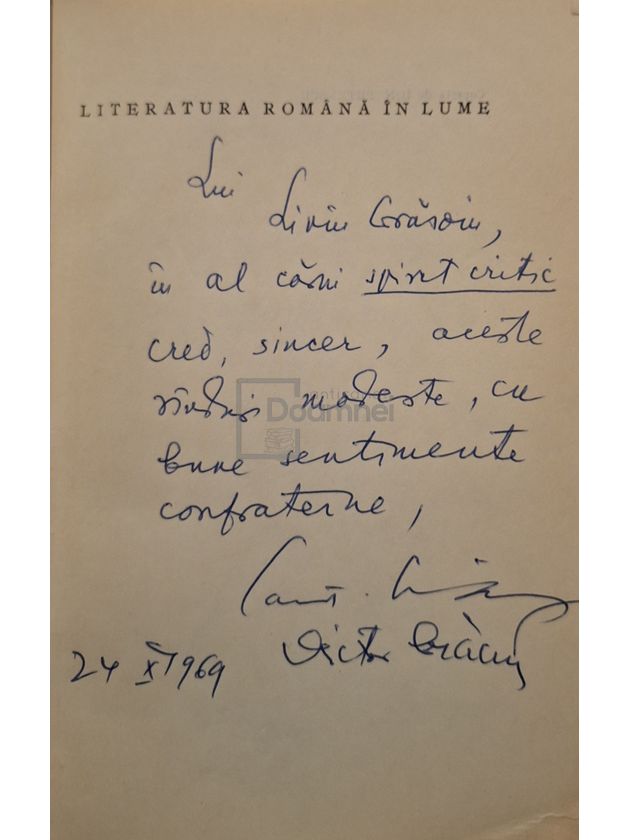 LITERATURA ROMÂNĂ ÎN LUME
Lui
Liviu Grăsoiu,
în al cărui spirit critic
cred, sincer, aceste
rînduri modeste, cu
bune sentimente
confraterne,
Victor Crăciun
24 XI 1969
Doamnei